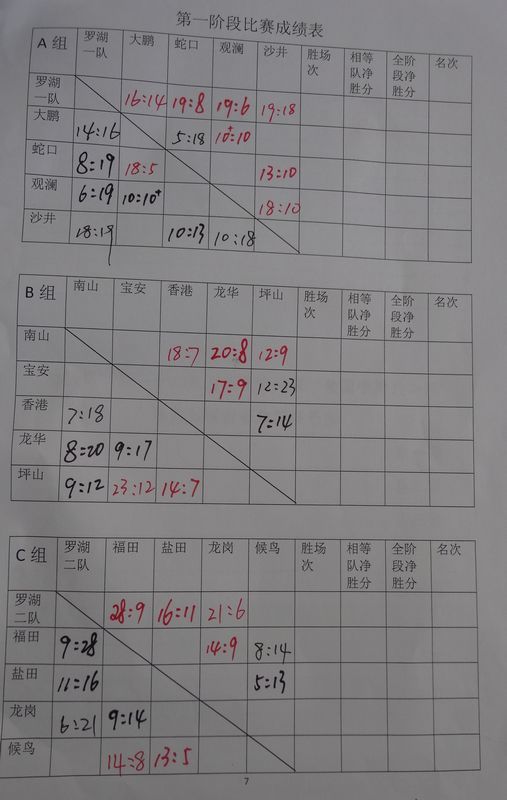 第一阶段比赛成绩表
A 组 罗湖一队 大鹏 蛇口 观澜 沙井 胜场次 相等队净胜分 全阶段净胜分 名次
罗湖一队 16:14 19:8 19:6 19:18
大鹏 14:16 5:18 10⁺:10
蛇口 8:19 18:5 13:10
观澜 6:19 10:10⁺ 18:10
沙井 18:19 10:13 10:18
B 组 南山 宝安 香港 龙华 坪山 胜场次 相等队净胜分 全阶段净胜分 名次
南山 18:7 20:8 12:9
宝安 17:9 12:23
香港 7:18 7:14
龙华 8:20 9:17
坪山 9:12 23:12 14:7
C 组 罗湖二队 福田 盐田 龙岗 候鸟 胜场次 相等队净胜分 全阶段净胜分 名次
罗湖二队 28:9 16:11 21:6
福田 9:28 14:9 8:14
盐田 11:16 5:13
龙岗 6:21 9:14
候鸟 14:8 13:5
7